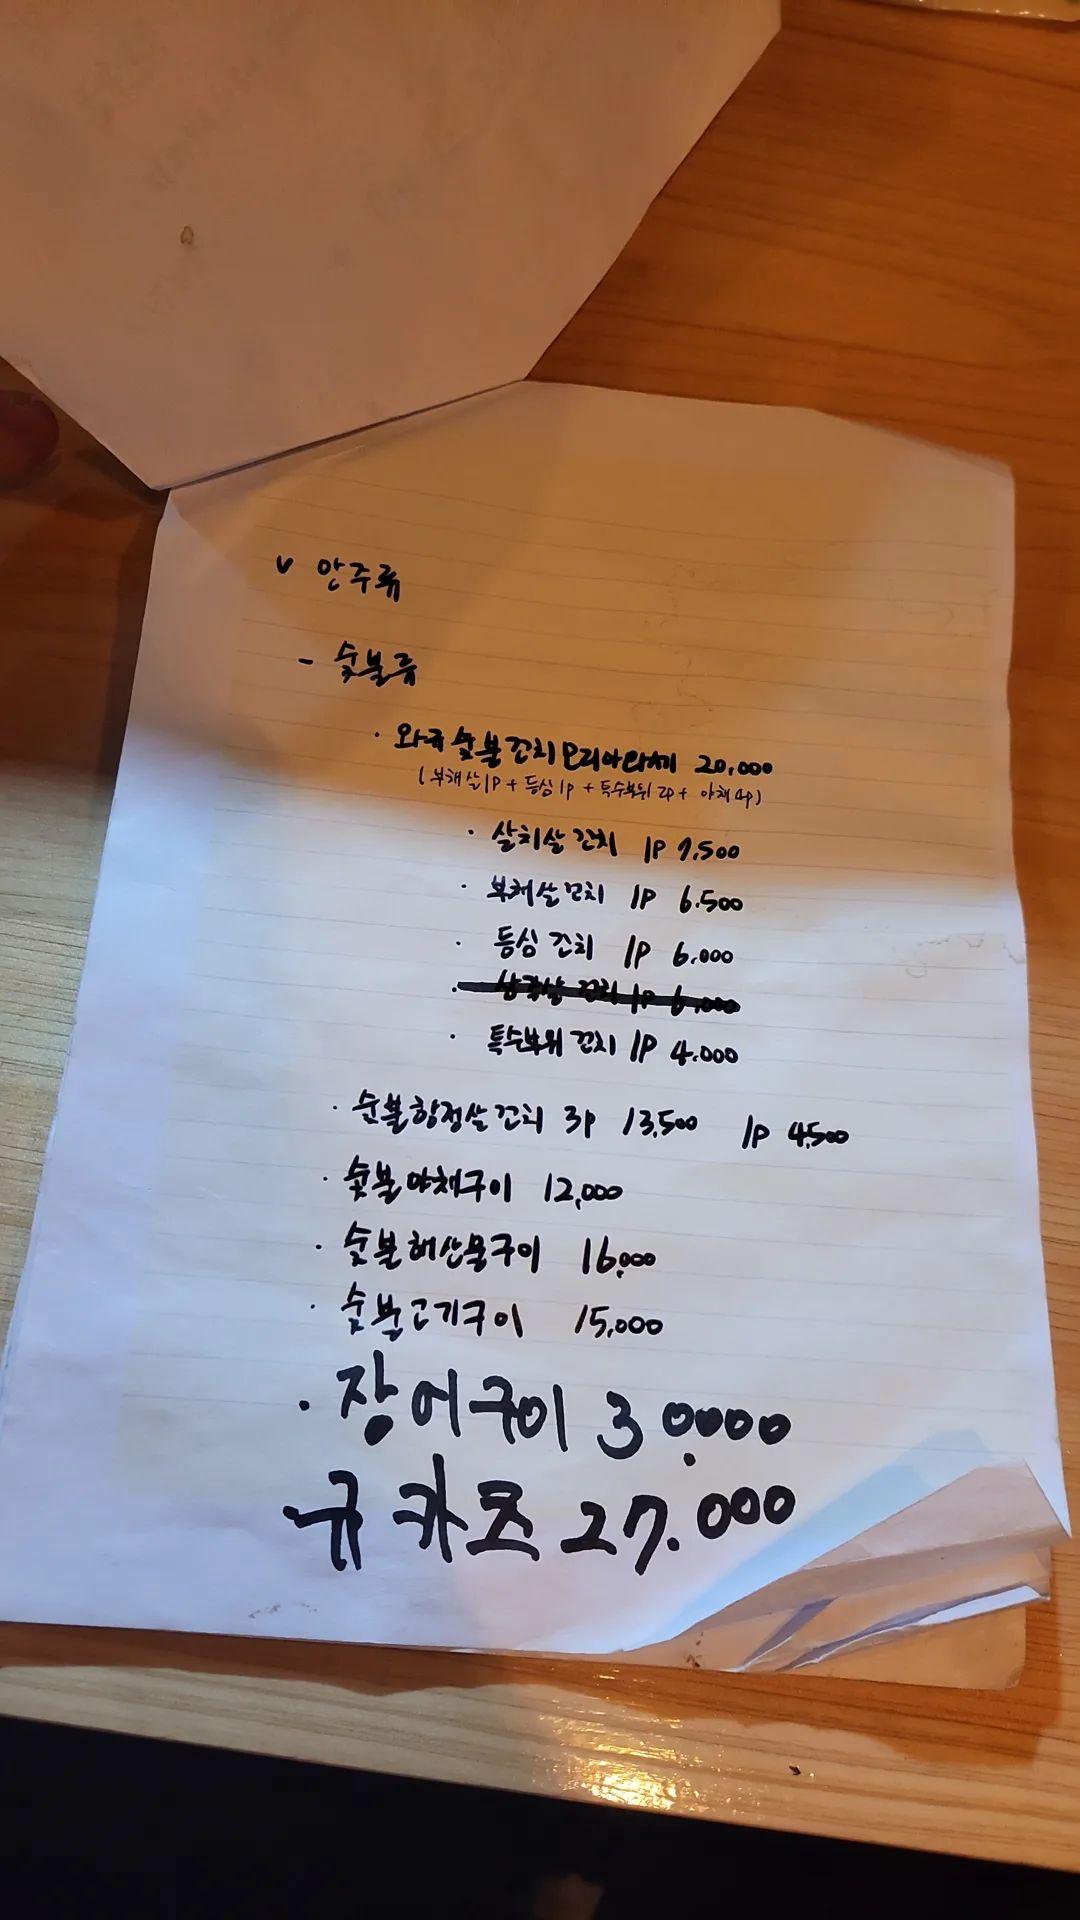 v 안주류
- 숯불류
· 와규 숯불 꼬치 모리아와세 20,000
(부채살 1p + 등심 1p + 특수부위 2p + 야채 4p)
· 살치살 꼬치 1P 7,500
· 부채살 꼬치 1P 6.500
· 등심 꼬치 1P 6,000
· 삼각살 꼬치 1P 6,000
· 특수부위 꼬치 1P 4,000
· 숯불항정살 꼬치 3P 13,500 1P 4,500
· 숯불야채구이 12,000
· 숯불해산물구이 16,000
· 숯불고기구이 15,000
· 장어구이 30,000
규카츠 27.000